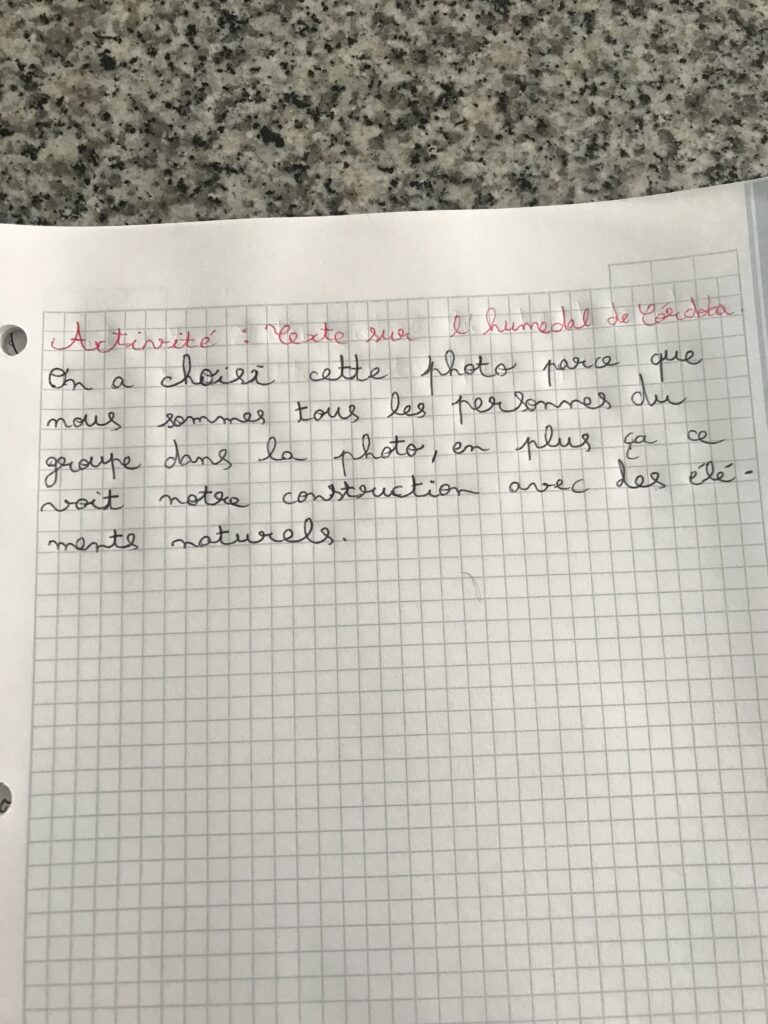 Activité : Texte sur l'humedal de Córdoba
On a choisi cette photo parce que
nous sommes tous les personnes du
groupe dans la photo, en plus ça ce
voit notre construction avec des élé-
ments naturels.